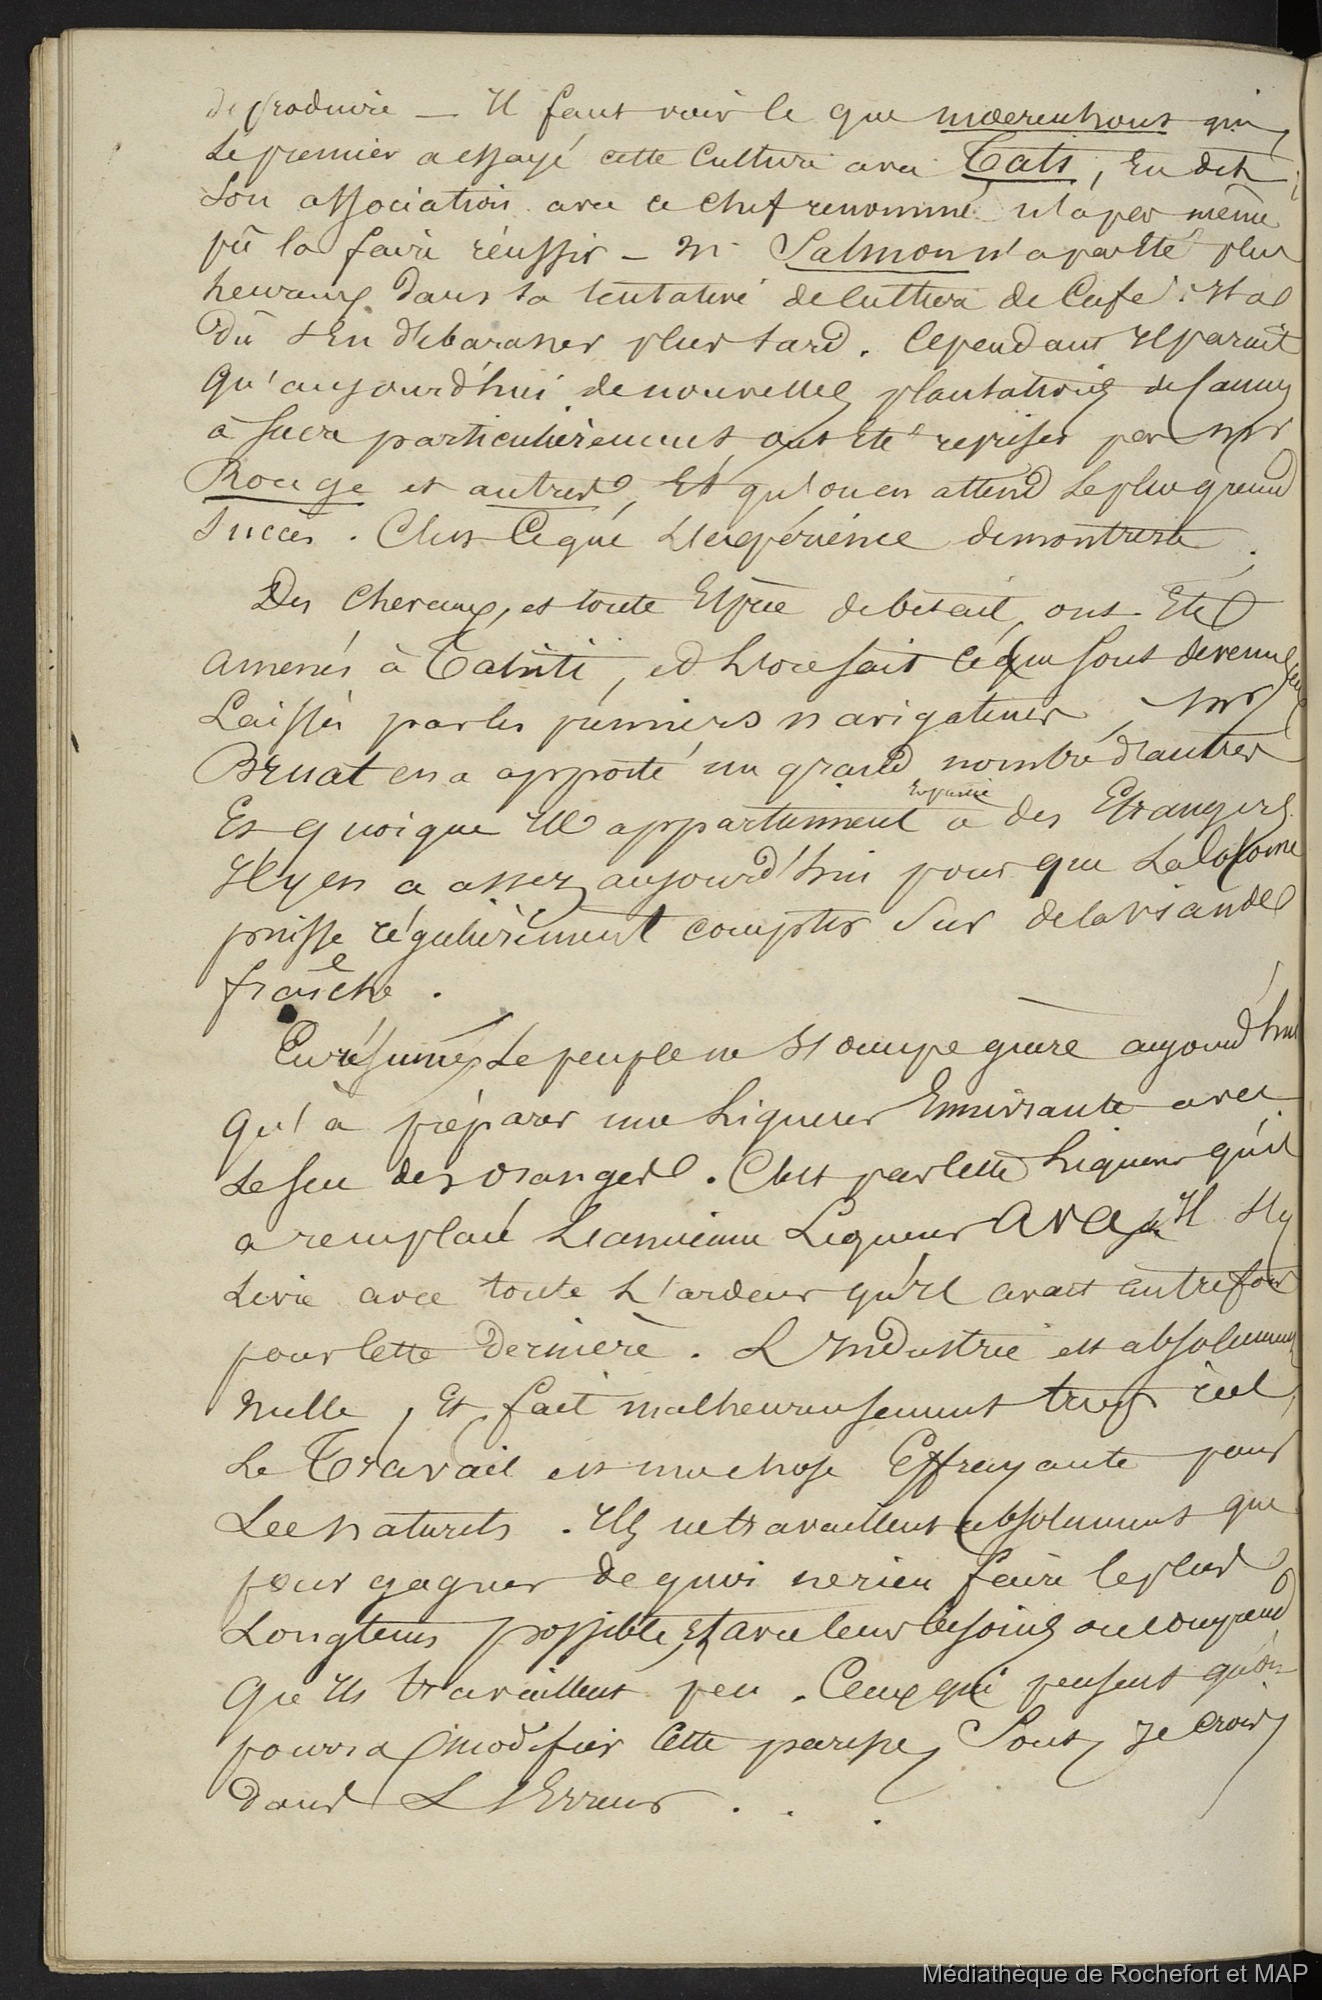 de produire — Il faut voir le que Moerenhout qui
Le premier a essayé cette Culture avec Tati, En dit,
Son association avec ce chef renommé n'a pas même
pû la faire réussir — Mr Salmon n'a pas été plus
heureux dans sa tentative de culture de Café. Il a
Dû s'En débarasser plus tard. Cependant Il parait
Qu'aujourd'hui de nouvelles plantations de Cannes
à Sucre particulièrement ont Eté reprises par Mr
Rouge et autres, Et qu'on en attend Le plus grand
Succès. C'est Ce que L'expérience démontrera.
Des Chevaux, et toute Espèce de bétail, ont Eté
Amenés à Tahiti, on sait Ce que sont devenus ceux
Laissés par les premiers navigateurs, Mr
Bruat en a apporté un grand nombre d'autres
En partie
Et quoique Ils appartiennent à des Etrangers
Il y en a assez aujourd'hui pour que La Colonie
puisse régulièrement compter Sur de la viande
fraîche.
En résumé, Le peuple ne s'occupe guère aujourd'hui
Qu'à préparer une Liqueur Ennivrante avec
Le Suc des oranges. C'est par cette Liqueur qu'il
a remplacé L'ancienne Liqueur Ava, Il s'y
Livre avec toute L'ardeur qu'il avait autrefois
pour Cette Dernière. L'Industrie est absolument
Nulle, Et fait malheureusement trop réel,
Le Travail est une chose Effrayante pour
Les naturels. Ils ne travaillent absolument que
pour gagner De quoi ne rien faire le plus
Longtems possible, Et avec leurs besoins on comprend
Que Ils travaillent peu. Ceux qui pensent qu'on
pourra modifier Cette paresse, Sont, Je Crois
Dans L'Erreur . . .
Médiathèque de Rochefort et MAP